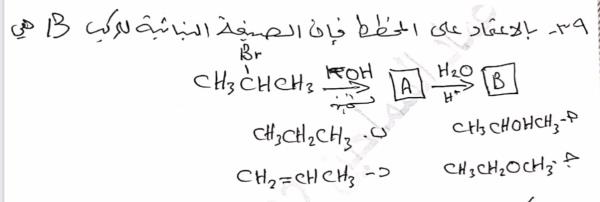 ٣٩- بالاعتماد على المخطط فإن الصيغة البنائية للمركب B هي
Br
CH3CHCH3 KOH A H2O H+ B
CH3CHOHCH3 -أ CH3CH2CH3 -ب
CH3CH2OCH3 -ج CH2=CHCH3 -د